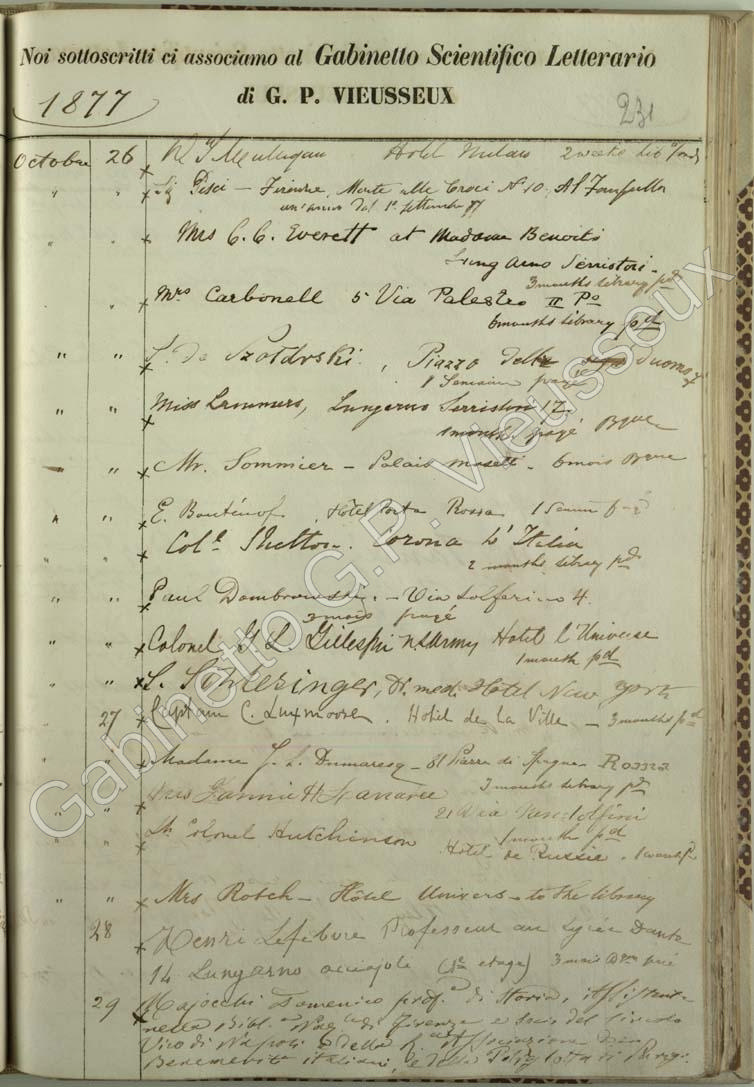 Noi sottoscritti ci associamo al Gabinetto Scientifico Letterario
di G. P. VIEUSSEUX
1877
231
Octobre 26 x Hotel Milan 2 weeks
" " x Pisci — Firenze, Monte alle Croci N. 10. Al Fanfulla
un'anno dal 1º settembre 77
" " x Mrs C. C. Everett at Madame Benoit's
Lung Arno Serristori.
3 months library pd
" " x Mrs Carbonell 5 Via Palestro II Po
6 months library pd
" " x de , Piazza del Duomo
1 Semaine payé
" " x Miss Lemmers, Lungarno Serristori 17.
1 month payé
" x Mr. Sommier — Palais — 6 mois
" " x E. Bouténof, Hôtel Porta Rossa 1 Sem
x Colel Shelton. Corona d'Italia
2 months library pd
" " x Paul Dombrowski. — Via Solferino 4.
3 mois payé
" " x Colonel G L Gillespie US Army Hotel l'Univers
1 month pd
" " x S. Schlesinger, Dr. med. Hotel New York
" 27 x Captain C. Luxmoore. Hotel de La Ville — 3 months pd
" " x Madame J. L. Dumaresq — Piazza di
3 months library pd
" " x Fannie H
21 Via Pandolfini
1 month pd
" " x Lt Colonel Hutchinson Hotel de Russie. 1 month
" " x Mrs Rotch — Hôtel Univers — to the library
28 x Henri Lefebvre Professeur au Lycée Dante
14 Lungarno acciajole (1er etage) 3 mois payé
29 x Majocchi Domenico prof. di Storia,
nella Bibl. Naz. di Firenze e Socio del Circolo
Vico di Napoli e della Associazione dei
Benemeriti italiani, e della
Gabinetto G.P. Vieusseux